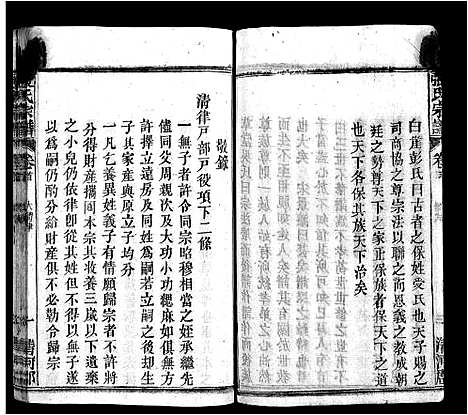 張氏宗譜
卷首
白崖彭氏曰古者之保姓受氏也天子賜之
司商協之尊宗法以聯之而恩義之教成朝
廷之勢尊天下之家正保族者保天下
也天下各保其族天下治矣
敬錄
清律戸部戸役項下二條
一無子者許令同宗昭穆相當之姪承繼先
儘同父周親次及大小功緦麻如俱無方
許擇立遠房及同姓為嗣若立嗣之後卻生
子其家產與原立子均分
一凡乞養異姓義子有情願歸宗者不許將
分得財產攜回本宗其收養三歲以下遺棄
之小兒仍依律卽從其姓但不得以無子遂
立為嗣仍酌分給財產俱不必勒令歸宗
張氏宗譜
卷首
大清律
一
清河郡